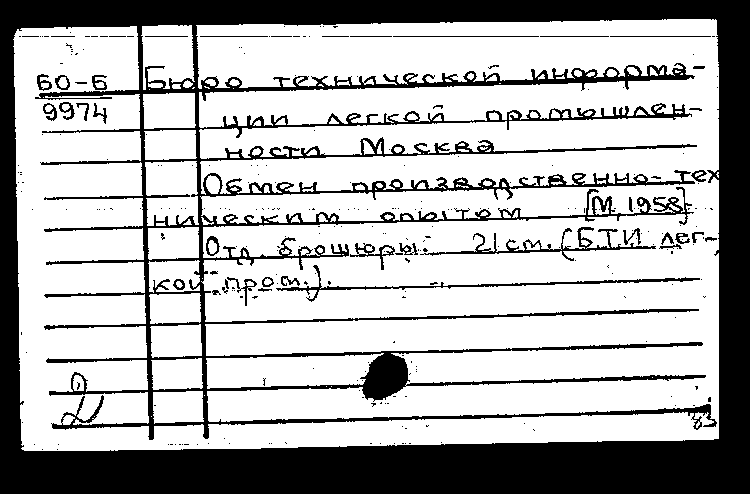 БО-Б Бюро технической информа-
9974 ции легкой промышлен-
ности Москва
Обмен производственно-тех
ническим опытом. [М, 1958].
Отд. брошюры. 21 см. (БТИ лег-
кой пром.).
2
83